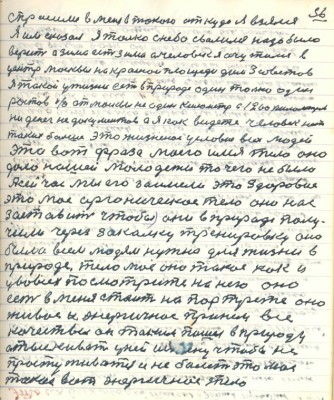 36
стрелили в меня в такого откуда я взялся
Я им сказал Я только с небо свалился надо было
верить а зима есть зима а человек Я хочу
центр москвы на красной площаде дом советов
Я такой у жизни есть в природе один только один
ростов от москвы не один километр
ни денег не документов а я как видете человек
таких больше это жизненое условия всех людей
Это вот фраза моего имя тело оно
дало нашей молодежи то чего не было
Ясей час мы его заимели это здоровие
это мое органическое тело они нас
заставить чтобы они в природе полу-
чили через закалку тренировку оно
было всем людям нужно для жизни в
природе, тело мое оно такое как и
увсех посмотрите на него оно
есть в меня стоит на портрете оно
живое и энергичное приняли все
качества он таким пошел в природу
отыскивать у ней чтобы не
простуживатся и не болеть это мое
такое вот энергичное тело